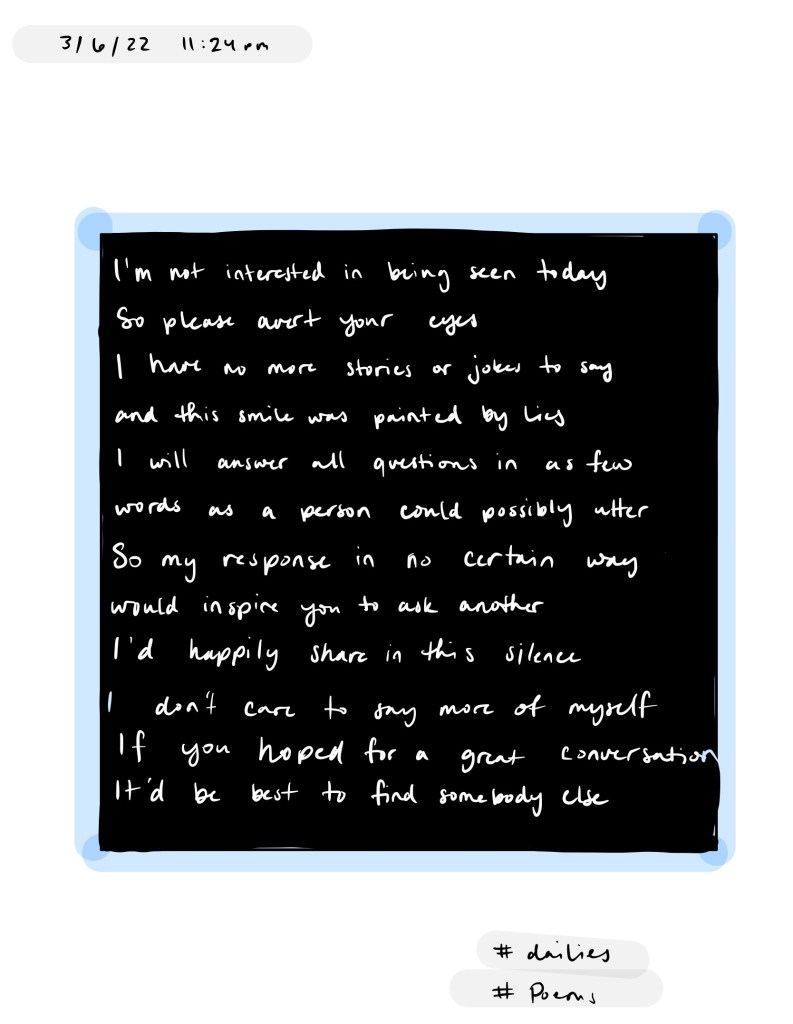 3/6/22 11:24 pm
I'm not interested in being seen today
So please avert your eyes
I have no more stories or jokes to say
and this smile was painted by lies
I will answer all questions in as few
words as a person could possibly utter
So my response in no certain way
would inspire you to ask another
I'd happily share in this silence
I don't care to say more of myself
If you hoped for a great conversation
It'd be best to find somebody else
# dailies
# Poems